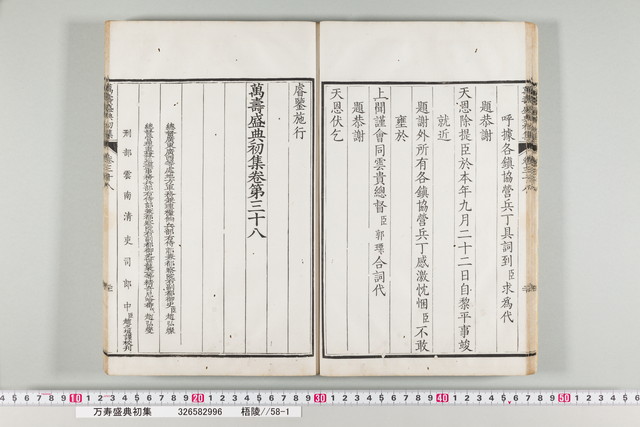 呼據各鎮協營兵丁具詞到臣求爲代
題恭謝
天恩除提臣於本年九月二十二日自黎平事竣
就近
題謝外所有各鎮協營兵丁感激忱悃臣不敢
壅於
上聞謹會同雲貴總督臣郭瑮合詞代
題恭謝
天恩伏乞
睿鑒施行
萬壽盛典初集卷第三十八
刑部雲南清吏司郎中臣
萬壽盛典初集
卷三十八
万寿盛典初集 326582996 梧陵//58-1